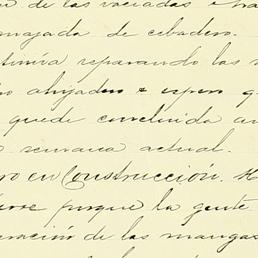 de las vaciadas e
majada de cebadero.
reparando las
ahijadero e espero q
quede concluida an
semana actual.
ro en Construcción. H
porque la gente
eración de las mangas